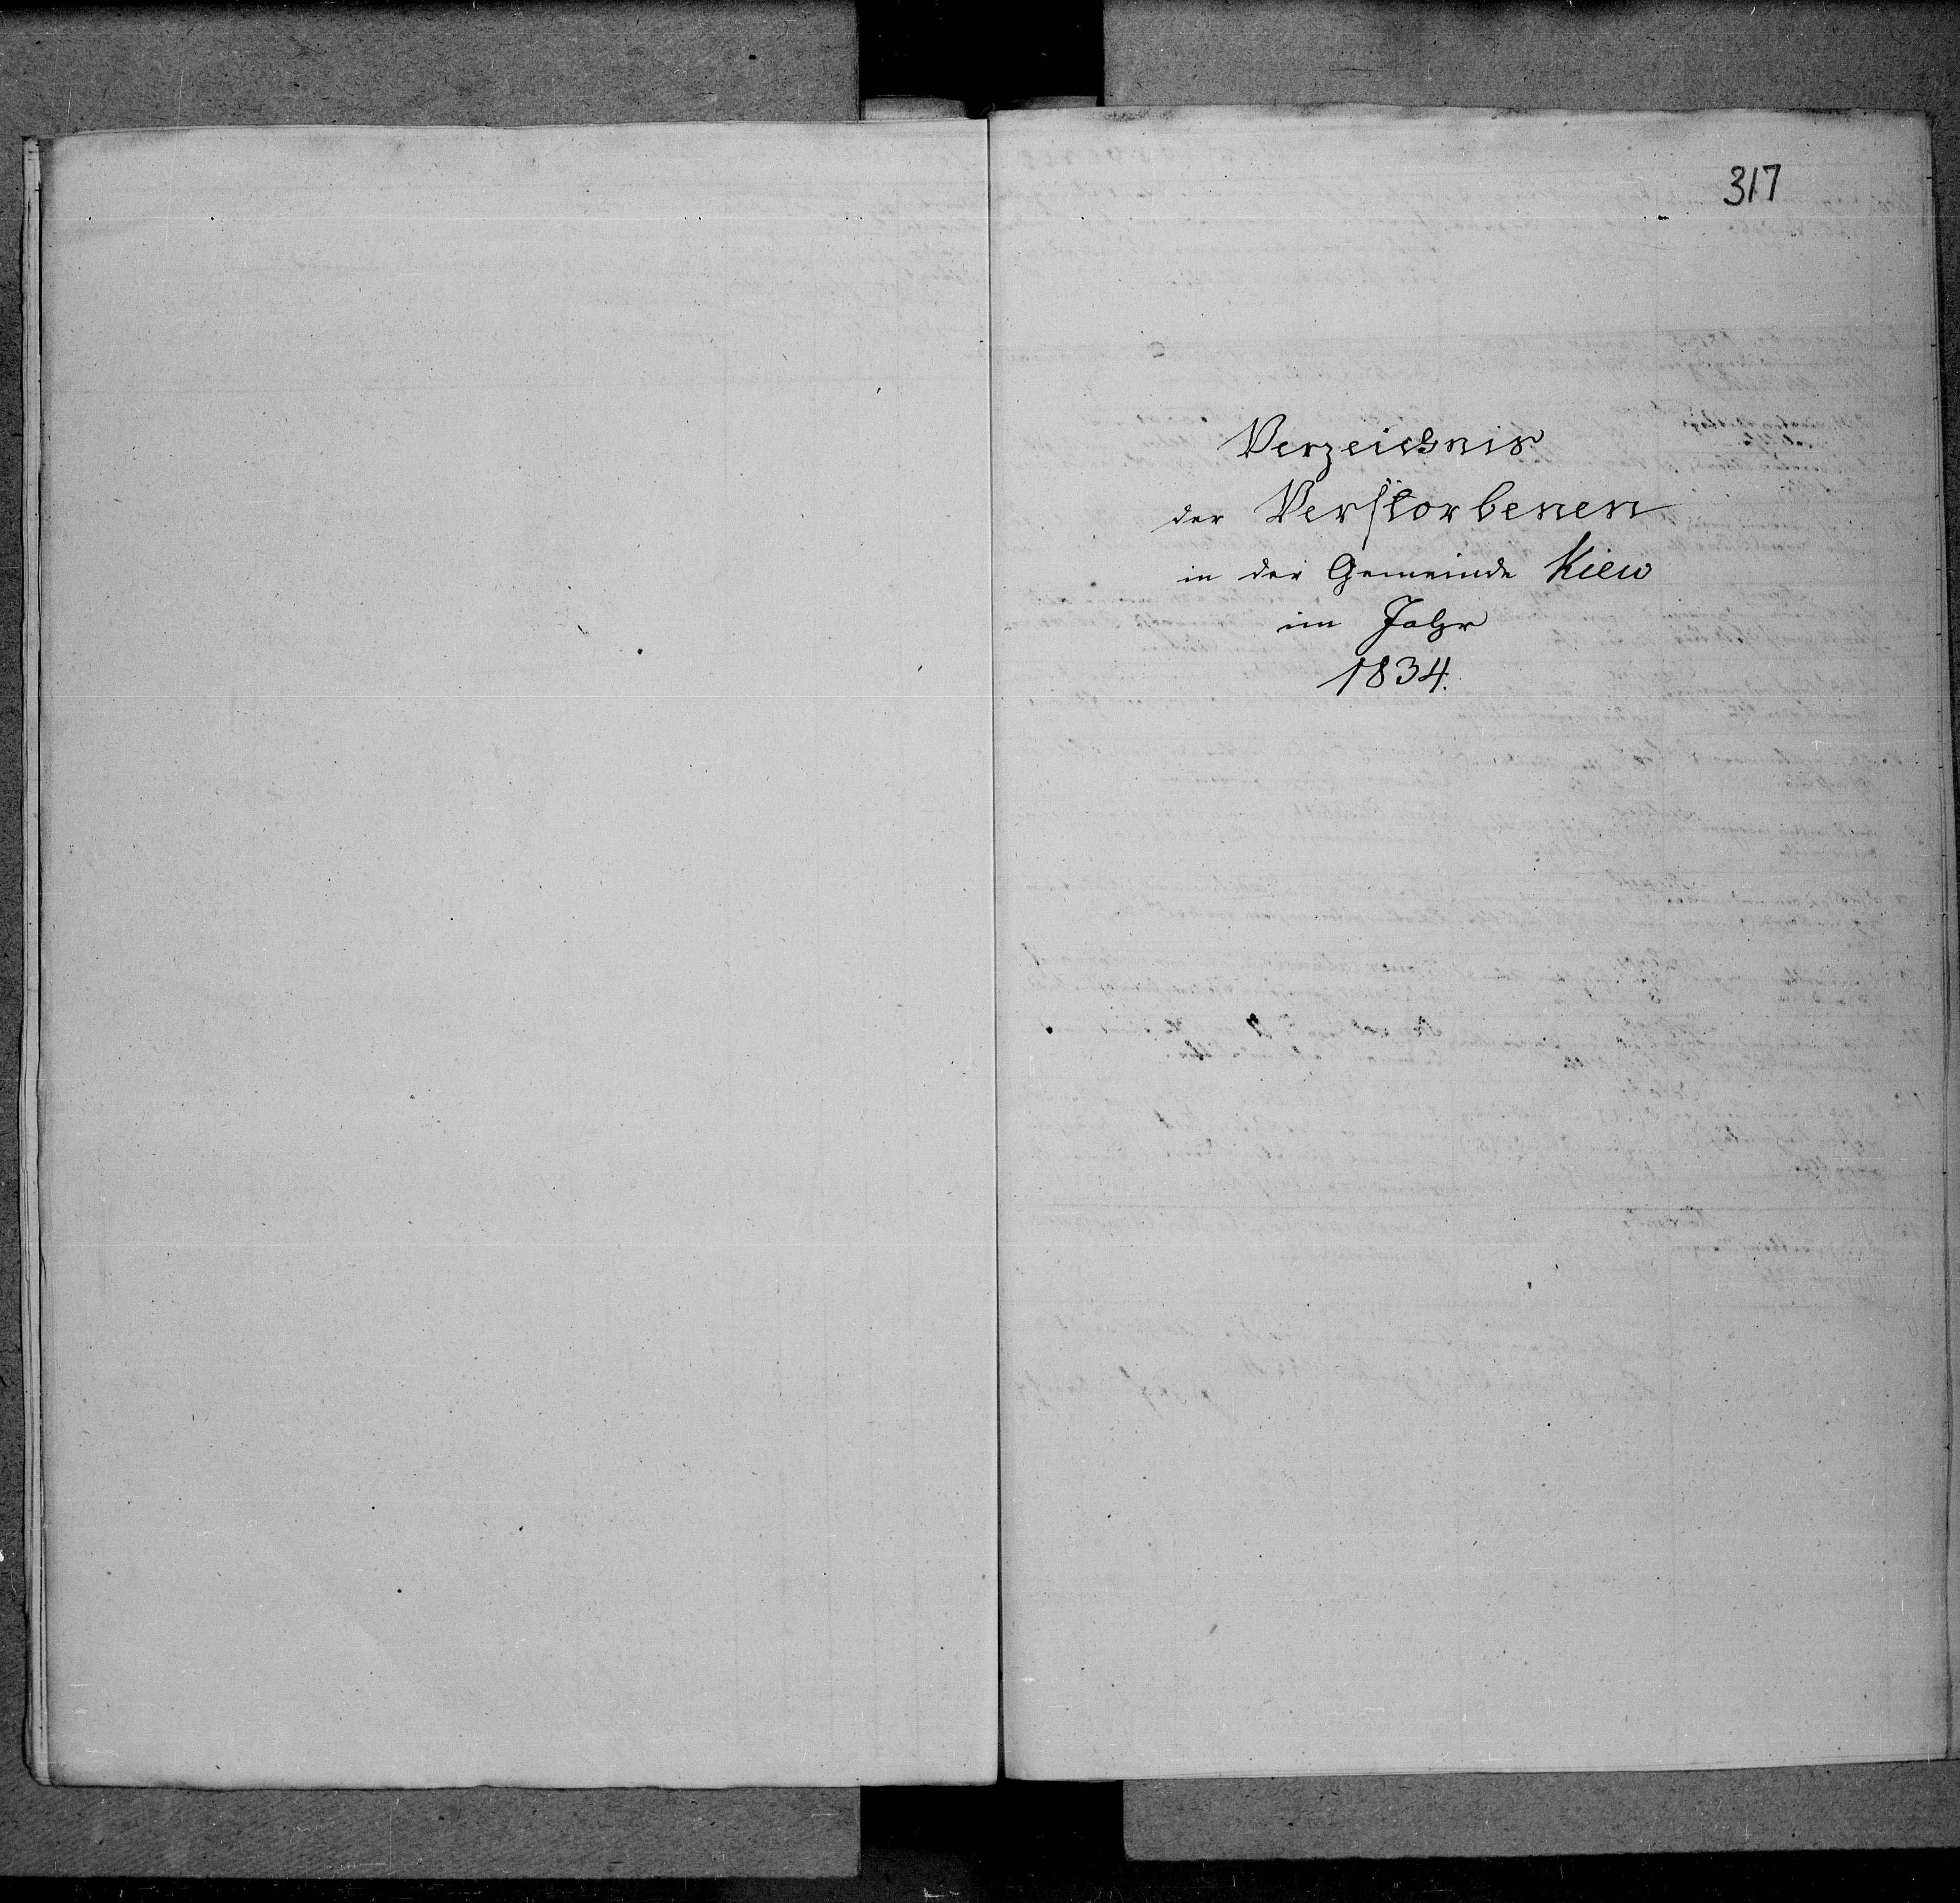 317
Verzeichnis
der Verstorbenen
in der Gemeinde Kiew
im Jahr
1834.